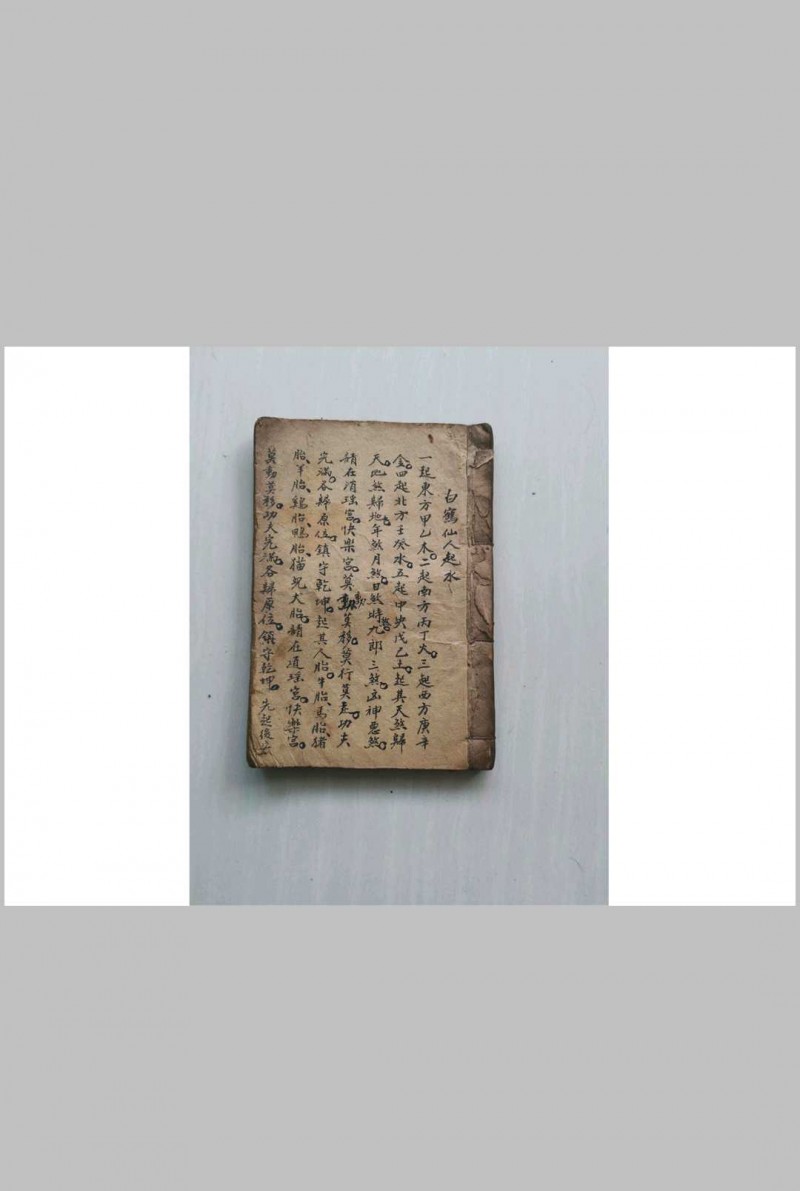 白鶴仙人起水
一起東方甲乙木。二起南方丙丁火。三起西方庚辛
金。四起北方壬癸水。五起中央戊己土。起其天煞歸
天。地煞歸地。年煞月煞。日煞時煞。九郎三煞。凶神惡煞。
請在瑶宮。快樂宮。莫動莫移。莫行莫走。功夫
完滿。各歸原位。鎮守乾坤。起其人胎。牛胎。馬胎。猪
胎。羊胎。鷄胎。鴨胎。猫兒犬胎。請在瑶宮。快樂宮。
莫動莫移。功夫完滿。各歸原位。鎮守乾坤。先起後安